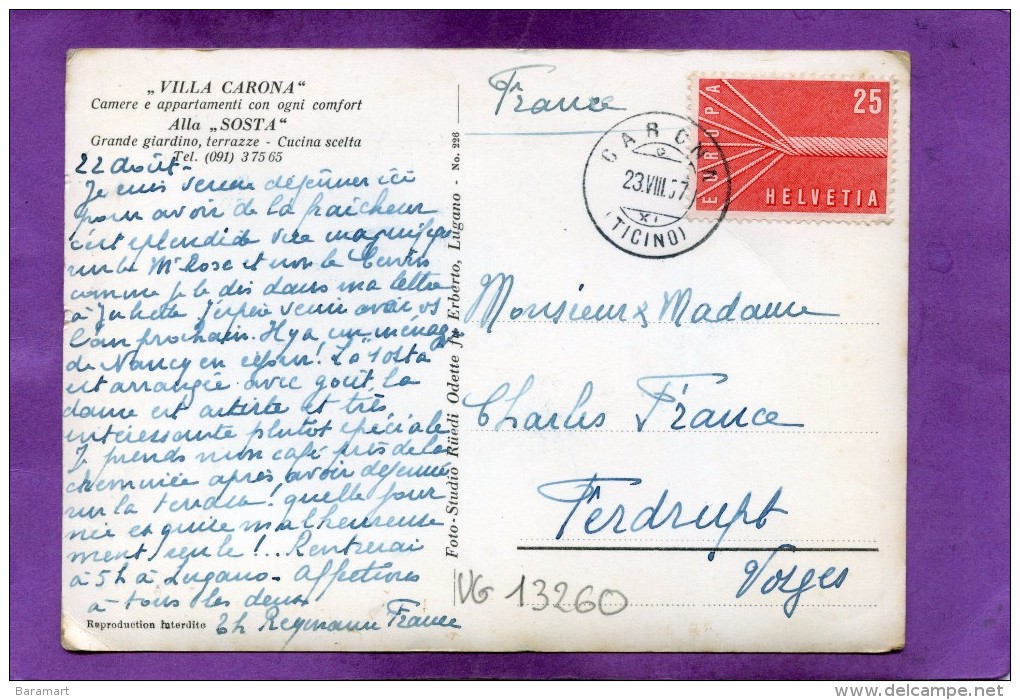 „VILLA CARONA“
Camere e appartamenti con ogni comfort
Alla „SOSTA“
Grande giardino, terrazze - Cucina scelta
Tel. (091) 3 75 65
22 août -
Je suis venue déjeuner ici
pour avoir de la fraîcheur
c'est splendide vue magnifique
sur le Mt Rose et non le Cervin
comme je le dis dans ma lettre
à Juliette J'espère venir avec vs
l'an prochain. Il y a un ménage
de Nancy en séjour! La "Sosta"
est arrangée avec goût, la
dame est artiste et très
intéressante plutôt spéciale
Je prends mon café près de la
cheminée après avoir déjeuné
sur la terrasse! quelle jour
née et je malheureuse
ment seule!... Rentrerai
à 5h à Lugano - Affections
à tous les deux
Th Reymann France
Reproduction interdite
Foto-Studio Rüedi Odette fu Erberto, Lugano - No. 226
France
CARONA
23.VIII.57
XI
(TICINO)
EUROPA
25
HELVETIA
Monsieur & Madame
Charles France
Ferdrupt
Vosges
VG 13260
Baramart
delcampe.net